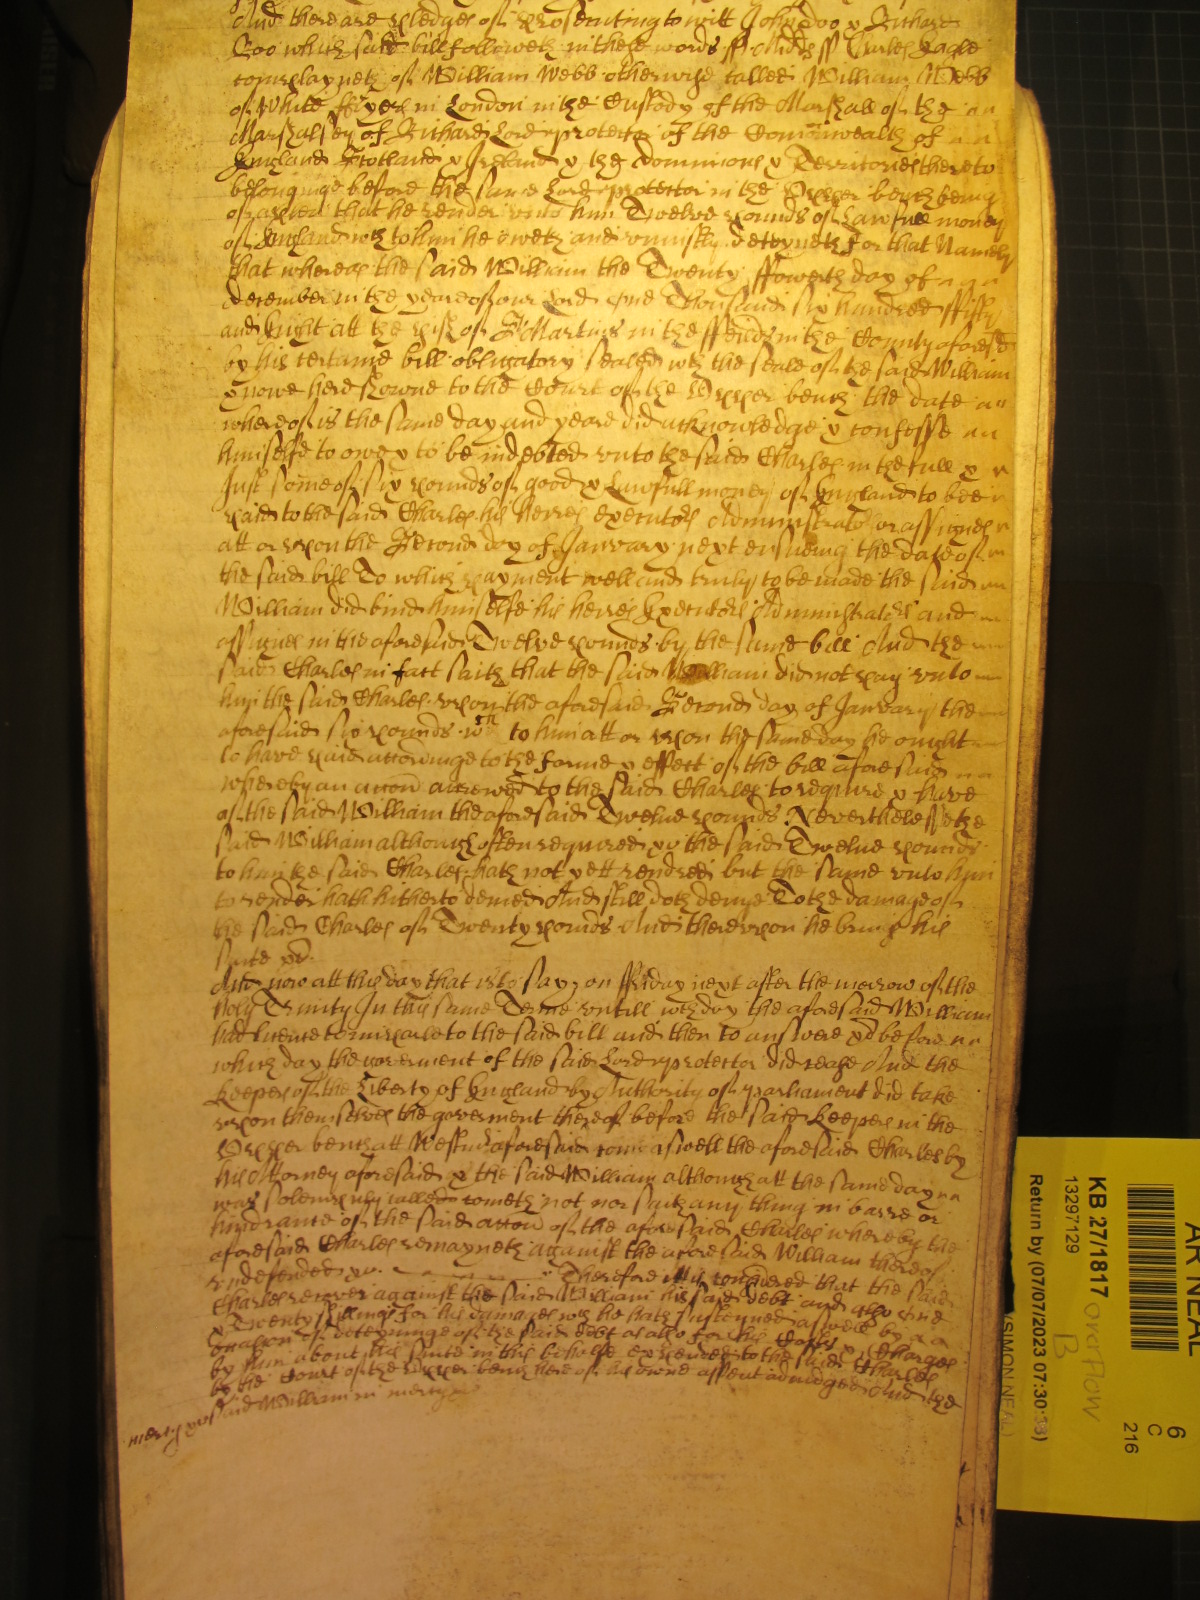 And there are pledges of prosecuting to witt John Doo & Richard
Roo which said bill followeth in these words ss Midds ss Charles Eagle
complayneth of William Webb otherwise called William Webb
of White ffryers in London in the Custody of the Marshall of the
Marshalsey of Richard Lord protector of the Comonwealth of
England Scotland & Ireland & the dominions & Territories thereto
belonginge before the same Lord protector in the Upper bench being
of a plea that he render unto him Twelve pounds of Lawfull money
of England wch to him he oweth and uniustly deteyneth for that Namely
that whereas the said William the Twenty ffowerth day of
december in the yeare of our Lord one Thousand six hundred ffifty
and Eight att the pish of St Martins in the ffeilds in the County aforesd
by his certaine bill obligatory sealed wth the seale of the said William
& nowe here showne to the Court of the Upper bench the date
whereof is the same day and yeare did acknowledge & confesse
himselfe to owe & to be indebted unto the said Charles in the full &
Just some of six pounds of good & Lawfull money of England to bee
paid to the said Charles his heires executors Administrators or assignes
att or upon the Second day of January next ensueing the date of
the said bill To which payment well and truly to be made the said
William did bind himselfe his heires Executors Administrators and
assignes in the aforesaid Twelve pounds by the same bill And the
said Charles in fact saith that the said William did not pay unto
him the said Charles upon the aforesaid Second day of January the
aforesaid six pounds wch to him att or upon the same day he ought
to have paid accordinge to the forme & effect of the bill aforesaid
whereby an accon accrewed to the said Charles to require & have
of the said William the aforesaid Twelve pounds Neverthelesse the
said William although often required &c the said Twelve pounds
to him the said Charles hath not yett rendred but the same unto him
to render hath hitherto denied And still doth denye To the damage of
the said Charles of Twenty pounds And thereupon he brings his
suite &c
And now att this day that is to say on ffriday next after the morrow of the
holy Trinity In this same Terme untill wch day the aforesaid William
had licence to imparle to the said bill and then to answere &c before
which day the goverment of the said Lord protector did cease And the
Keepers of the Liberty of England by Authority of parliament did take
upon themselves the goverment thereof before the said Keepers in the
Upper bench att Westmr aforesaid come aswell the aforesaid Charles by
his Attorney aforesaid & the said William although att the same day
was solempnly called cometh not nor saith any thing in barre or
hindrance of the said accon of the aforesaid Charles whereby the
aforesaid Charles remayneth against the aforesaid William thereof
undefended &c. Therefore itt is considered that the said
Charles recover against the said William his said debt and also one
& Twenty shillings for his damages wch he hath susteyned aswell by
occasion of deteyninge of the said debt as also for his Costs & Charges
by him about his suite in this behalfe expended to the said Charles
by the Court of the Upper bench here of his owne assent adiudged And the
said William in mercy &c
mercy &c
KB 27/1817
13297/129
Return by (07/07/2023 07:30:33)
(SIMON NEAL)
overflow
B
6
C
216